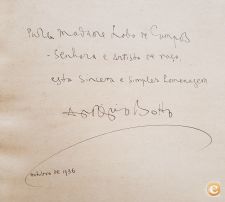 Para Madame Lobo de Campos
- Senhora e artista de raça,
esta sincera e simples homenagem
António Botto
outubro de 1936